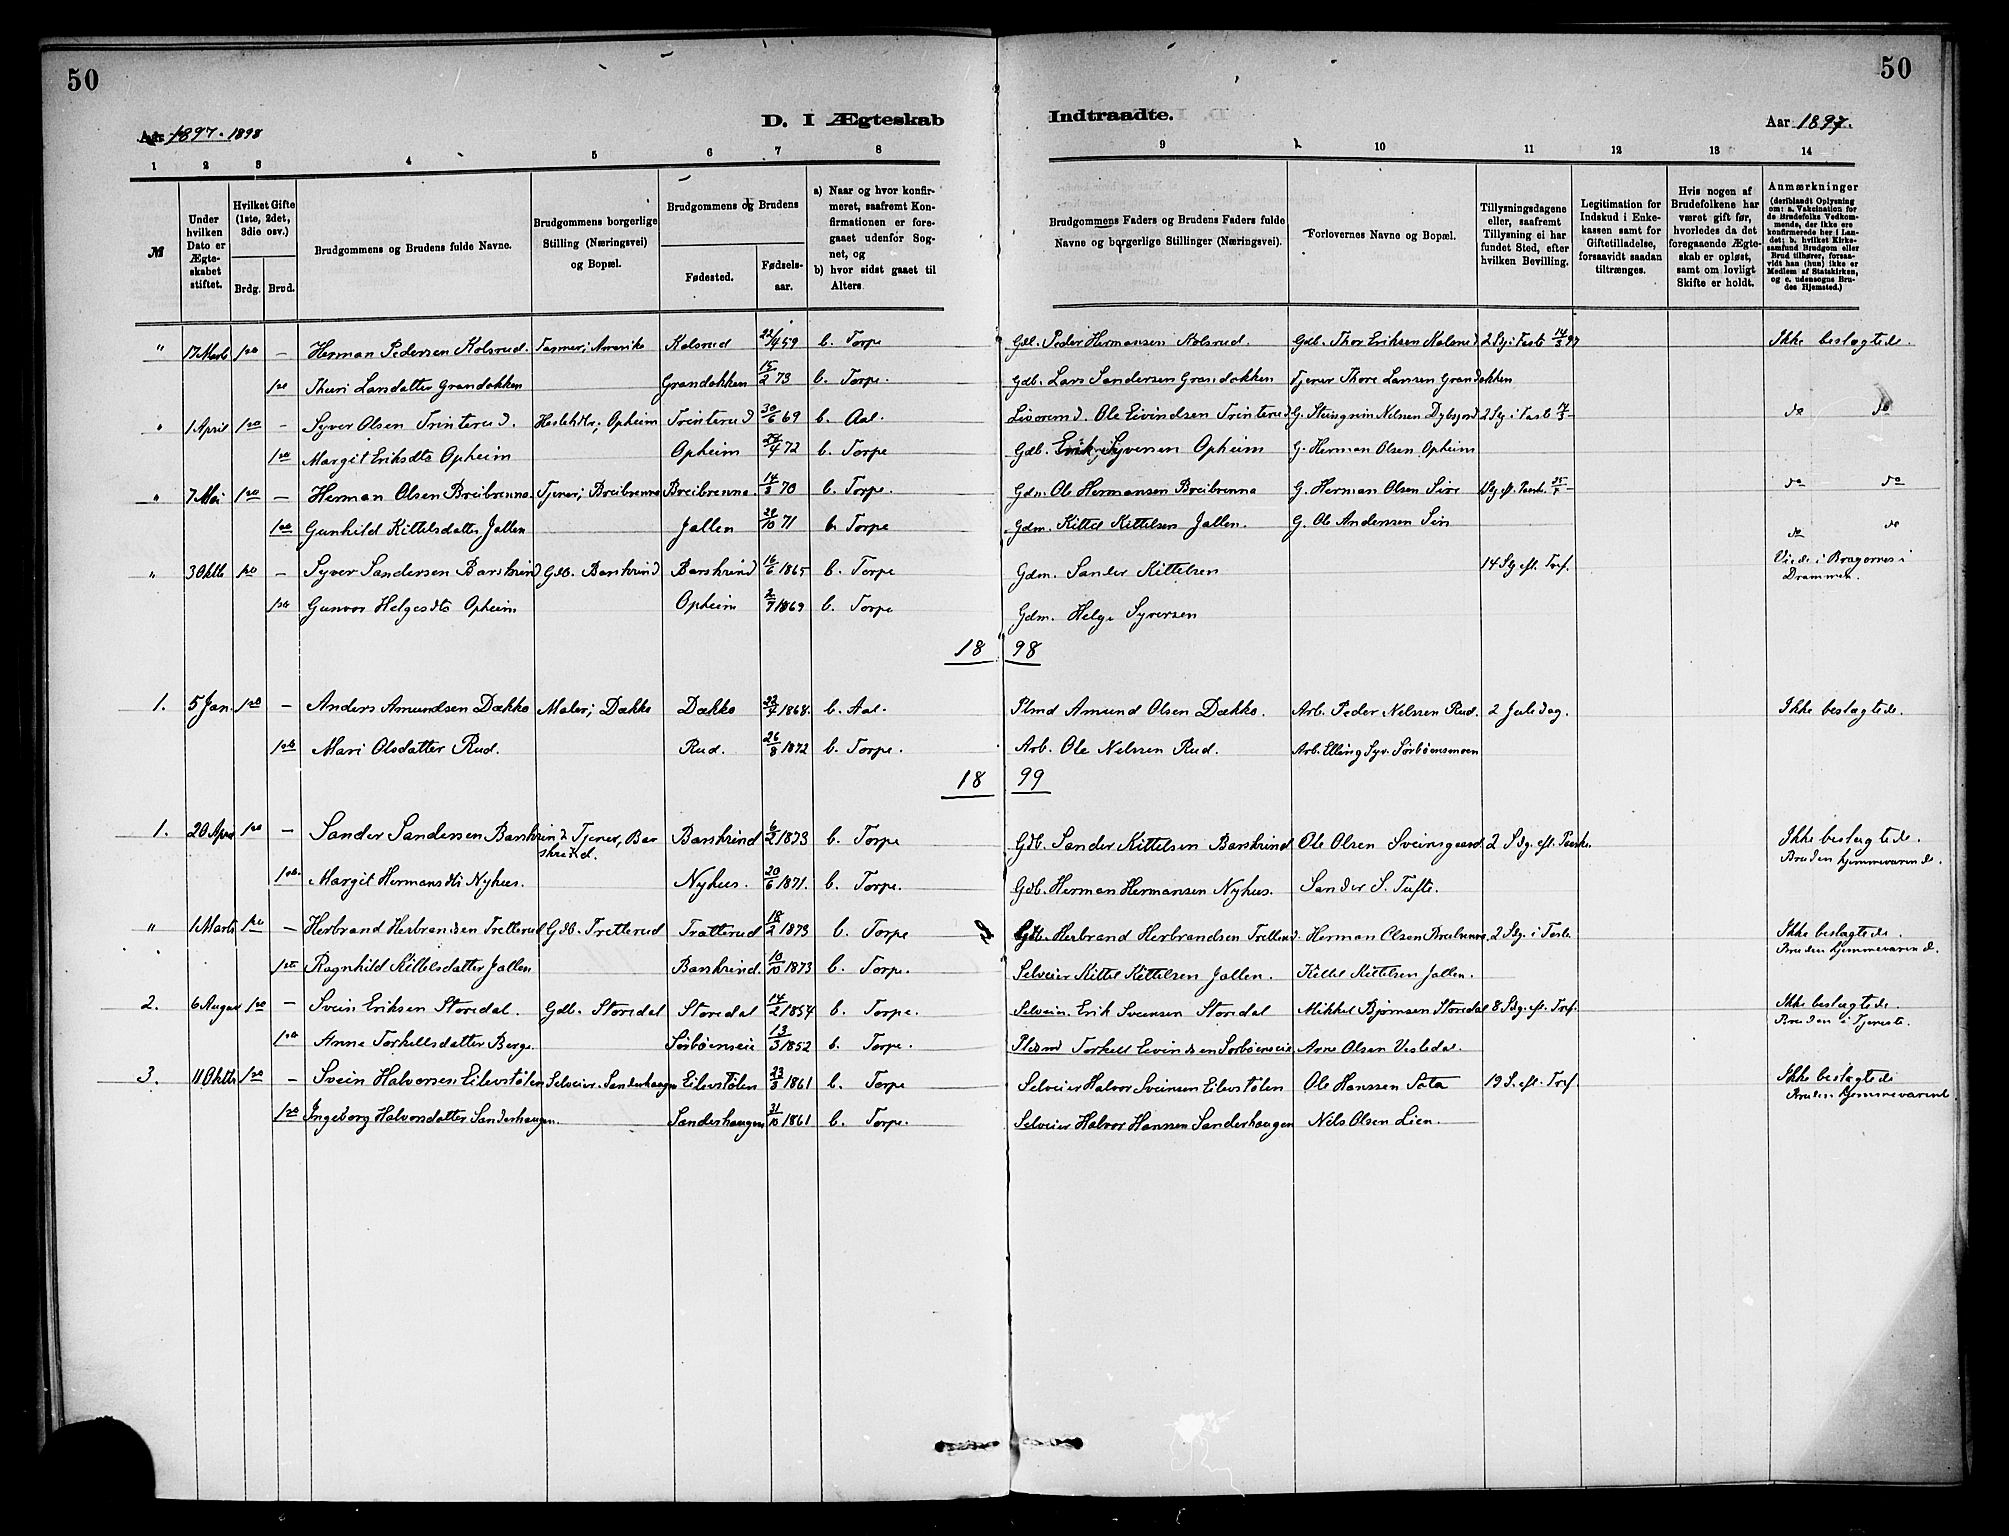 50
50
D. I Ægteskab Indtraadte.
Aar 1897. 1898
Aar 1897.
1 2 3 4 5 6 7 8 9 10 11 12 13 14
№
Under hvilken Dato er Ægteskabet stiftet.
Hvilket Gifte (1ste, 2det, 3die osv.)
Brdg. Brud.
Brudgommens og Brudens fulde Navne.
Brudgommens borgerlige Stilling (Næringsvei) og Bopæl.
Brudgommens og Brudens
Fødested. Fødselsaar.
a) Naar og hvor konfirmeret, saafremt Konfirmationen er foregaaet udenfor Sognet, og
b) hvor sidst gaaet til Alters.
Brudgommens Faders og Brudens Faders fulde Navne og borgerlige Stillinger (Næringsvei).
Forlovernes Navne og Bopæl.
Tillysningsdagene eller, saafremt Tillysning ei har fundet Sted, efter hvilken Bevilling.
Legitimation for Indskud i Enkekassen samt for Giftetilladelse, forsaavidt saadan tiltrænges.
Hvis nogen af Brudefolkene har været gift før, hvorledes da det foregaaende Ægteskab er opløst, samt om lovligt Skifte er holdt.
Anmærkninger
(deriblandt Oplysning om: a. Vakcination for de Brudefolks Vedkommende, der ikke ere konfirmerede her i Landet; b. hvilket Kirkesamfund Brudgom eller Brud tilhører, forsaavidt han (hun) ikke er Medlem af Statskirken, og c. udensogns Brudes Hjemsted.)
" 17 Marts 1ste – Herman Pedersen Kolsrud. Farmer; Amerika Kolsrud 22/4 59 b. Torpe Gdb. Peder Hermansen Kolsrud. Gdb. Thor Eriksen Kolsrud 2 Sg. i Fast. 14/3 97 Ikke beslægtede.
1ste Thuri Larsdatter Grandokken Grandokken 15/2 73 b. Torpe. Gdb. Lars Sandersen Grandokken Tjener Thore Larssen Grandokken
" 1 April 1ste – Syver Olsen Trinterud. Opheim Trinterud 30/6 69 b. Aal. Ole Eivindsen Trinterud G. Steingrim Nilsen 2 Sg. i Fast. do do
1ste Margit Eriksdtr Opheim Opheim 72 b. Torpe Gdb. Erik Syversen Opheim G. Herman Olsen Opheim
" 7 Mai 1ste – Herman Olsen Breibrenna. Tjener; Breibrenna Breibrenna. 14/3 70 b. Torpe. Gdm. Ole Hermansen Breibrenna G. Herman Olsen Sire do do
1ste Gunhild Kittelsdatter Jallen Jallen 29/10 71 b. Torpe Gdm. Kittil Kittilsen Jallen. G. Ole Anderssen Siri do do
" 3 Oktb 1ste – Syver Sandersen Barskrind Gdb. Barskrind Barskrind 16/6 1865 b. Torpe Gdm. Sander Kittelsen 14 Sg. eft. Tref. Viede i Bragernes i Drammen.
1ste Gunvor Helgesdtr Opheim Opheim 2/7 1869 b. Torpe Gdm. Helge Syversen
18 98
1. 5 Jan. 1ste – Anders Amundsen Dækko Maler; Dækko Dækko 22/7 1868. b. Aal. Plmd Amund Olsen Dækko. Arb. Peder Nelssen Rud. 2 Juledag. Ikke beslægtede.
1ste Mari Olsdatter Rud. Rud. 26/8 1872 b. Torpe. Arb. Ole Nelssen Rud. Arb. Elling Syv. Sørbøensmoen
18 99
1. 20 April 1ste – Sander Sandersen Barskrind Tjener, Barskrind. Barskrind 6/2 1873 b. Torpe Gdb. Sander Kittelsen Barskrind Ole Olsen Sveinsgaard 2 Sdg. eft. Paaske. Ikke beslægtede. Bruden hjemmeværende.
1ste Margit Hermansdtr Nyhus. Nyhus. 20/6 1871. b. Torpe. Gdb. Herman Hermansen Nyhus. Sander S. Tufte.
" 1 Marts 1ste – Herbrand Herbrandsen Tretterud Gdb. Tretterud Trætterud 18/2 1873 b. Torpe Gdb. Herbrand Herbrandsen Tretterud. Herman Olsen Breibrenna 2 Sdg. i Faste. Ikke beslægtede. Bruden hjemmeværende.
1ste Ragnhild Kittelsdatter Jallen Barskrind. 10/10 1873 b. Torpe. Selveier Kittil Kittelsen Jallen. Kittel Kittelsen Jallen.
2. 6 August 1ste – Svein Eriksen Storedal. Gdb. Storedal Storedal 14/2 1854 b. Torpe. Selveier. Erik Sveinsen Storedal Mikkel Bjørnsen Storedal 8 Sdg. eft. Tref. Ikke beslægtede. Bruden i Tjeneste.
1ste Anne Torkellsdatter Berge. Sørbøenseie 13/3 1852 b. Torpe. Plsmd Torkell Eivindsen Sørbøenseie Arne Olsen Vesledal.
3. 11 Oktb 1ste – Svein Halvorsen Eilevstølen Selveier. Sanderhaugen Eilevstølen 23/3 1861 b. Torpe Selveier Halvor Sveinsen Eilevstølen Ole Hanssen Sata 19 S. eft. Tref. Ikke beslægtede Bruden hjemmeværende.
1ste Ingeborg Halvorsdatter Sanderhaugen. Sanderhaugen 31/10 1861 b. Torpe. Selveier Halvor Hanssen Sanderhaugen Nils Olsen Lien.